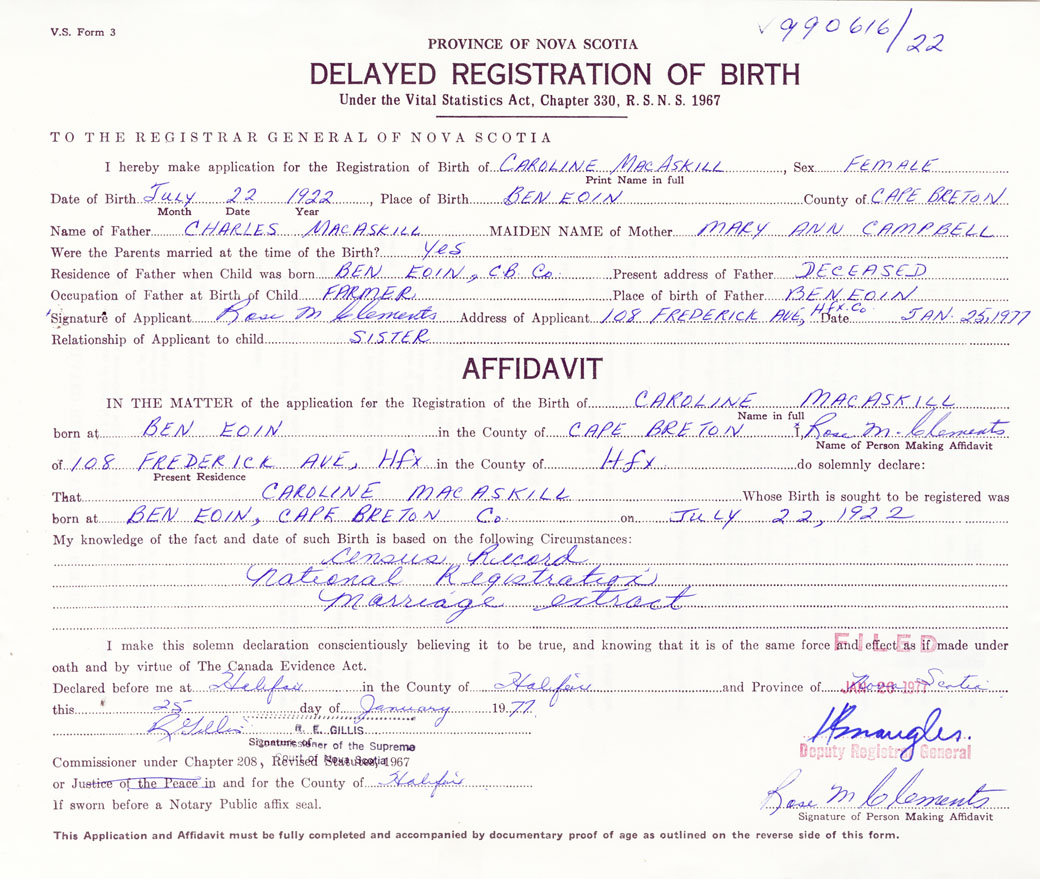 V.S. Form 3
990616/22
PROVINCE OF NOVA SCOTIA
DELAYED REGISTRATION OF BIRTH
Under the Vital Statistics Act, Chapter 330, R.S.N.S. 1967
TO THE REGISTRAR GENERAL OF NOVA SCOTIA
I hereby make application for the Registration of Birth of CAROLINE MACASKILL, Sex FEMALE
Print Name in full
Date of Birth JULY 22 1922, Place of Birth BEN EOIN County of CAPE BRETON
Month Date Year
Name of Father CHARLES MACASKILL MAIDEN NAME of Mother MARY ANN CAMPBELL
Were the Parents married at the time of the Birth? Yes
Residence of Father when Child was born BEN EOIN, CB Co. Present address of Father DECEASED
Occupation of Father at Birth of Child FARMER Place of birth of Father BEN EOIN
Signature of Applicant Rose M Clements Address of Applicant 108 FREDERICK AVE, Hfx. Co. Date JAN. 25, 1977
Relationship of Applicant to child SISTER
AFFIDAVIT
IN THE MATTER of the application for the Registration of the Birth of CAROLINE MACASKILL
Name in full
born at BEN EOIN in the County of CAPE BRETON I, Rose M. Clements
Name of Person Making Affidavit
of 108 FREDERICK AVE, Hfx in the County of Hfx do solemnly declare:
Present Residence
That CAROLINE MACASKILL Whose Birth is sought to be registered was
born at BEN EOIN, CAPE BRETON Co. on JULY 22, 1922
My knowledge of the fact and date of such Birth is based on the following Circumstances:
Census Record
National Registration
Marriage extract
I make this solemn declaration conscientiously believing it to be true, and knowing that it is of the same force and effect as if made under
FILED
oath and by virtue of The Canada Evidence Act.
Declared before me at Halifax in the County of Halifax and Province of Nova Scotia
JAN 26 1977
this 25 day of January 1977
R Gillis R. E. GILLIS
Signature of
Commissioner of the Supreme
Court of Nova Scotia
Deputy Registrar General
Commissioner under Chapter 208, Revised Statutes, 1967
or Justice of the Peace in and for the County of Halifax
Rose M Clements
If sworn before a Notary Public affix seal.
Signature of Person Making Affidavit
This Application and Affidavit must be fully completed and accompanied by documentary proof of age as outlined on the reverse side of this form.